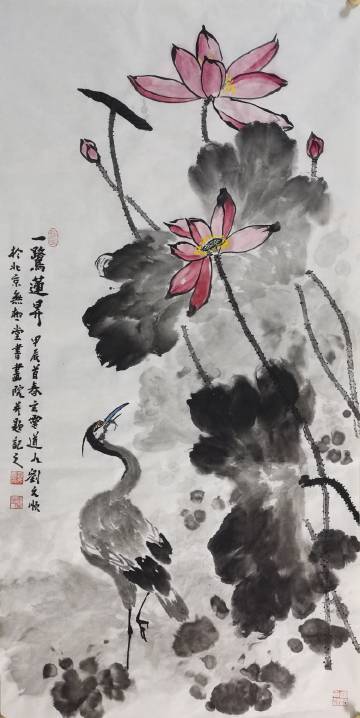 一鷺蓮昇
甲辰首春玄靈道人劉文順
於北京無極堂書畫院并題記之